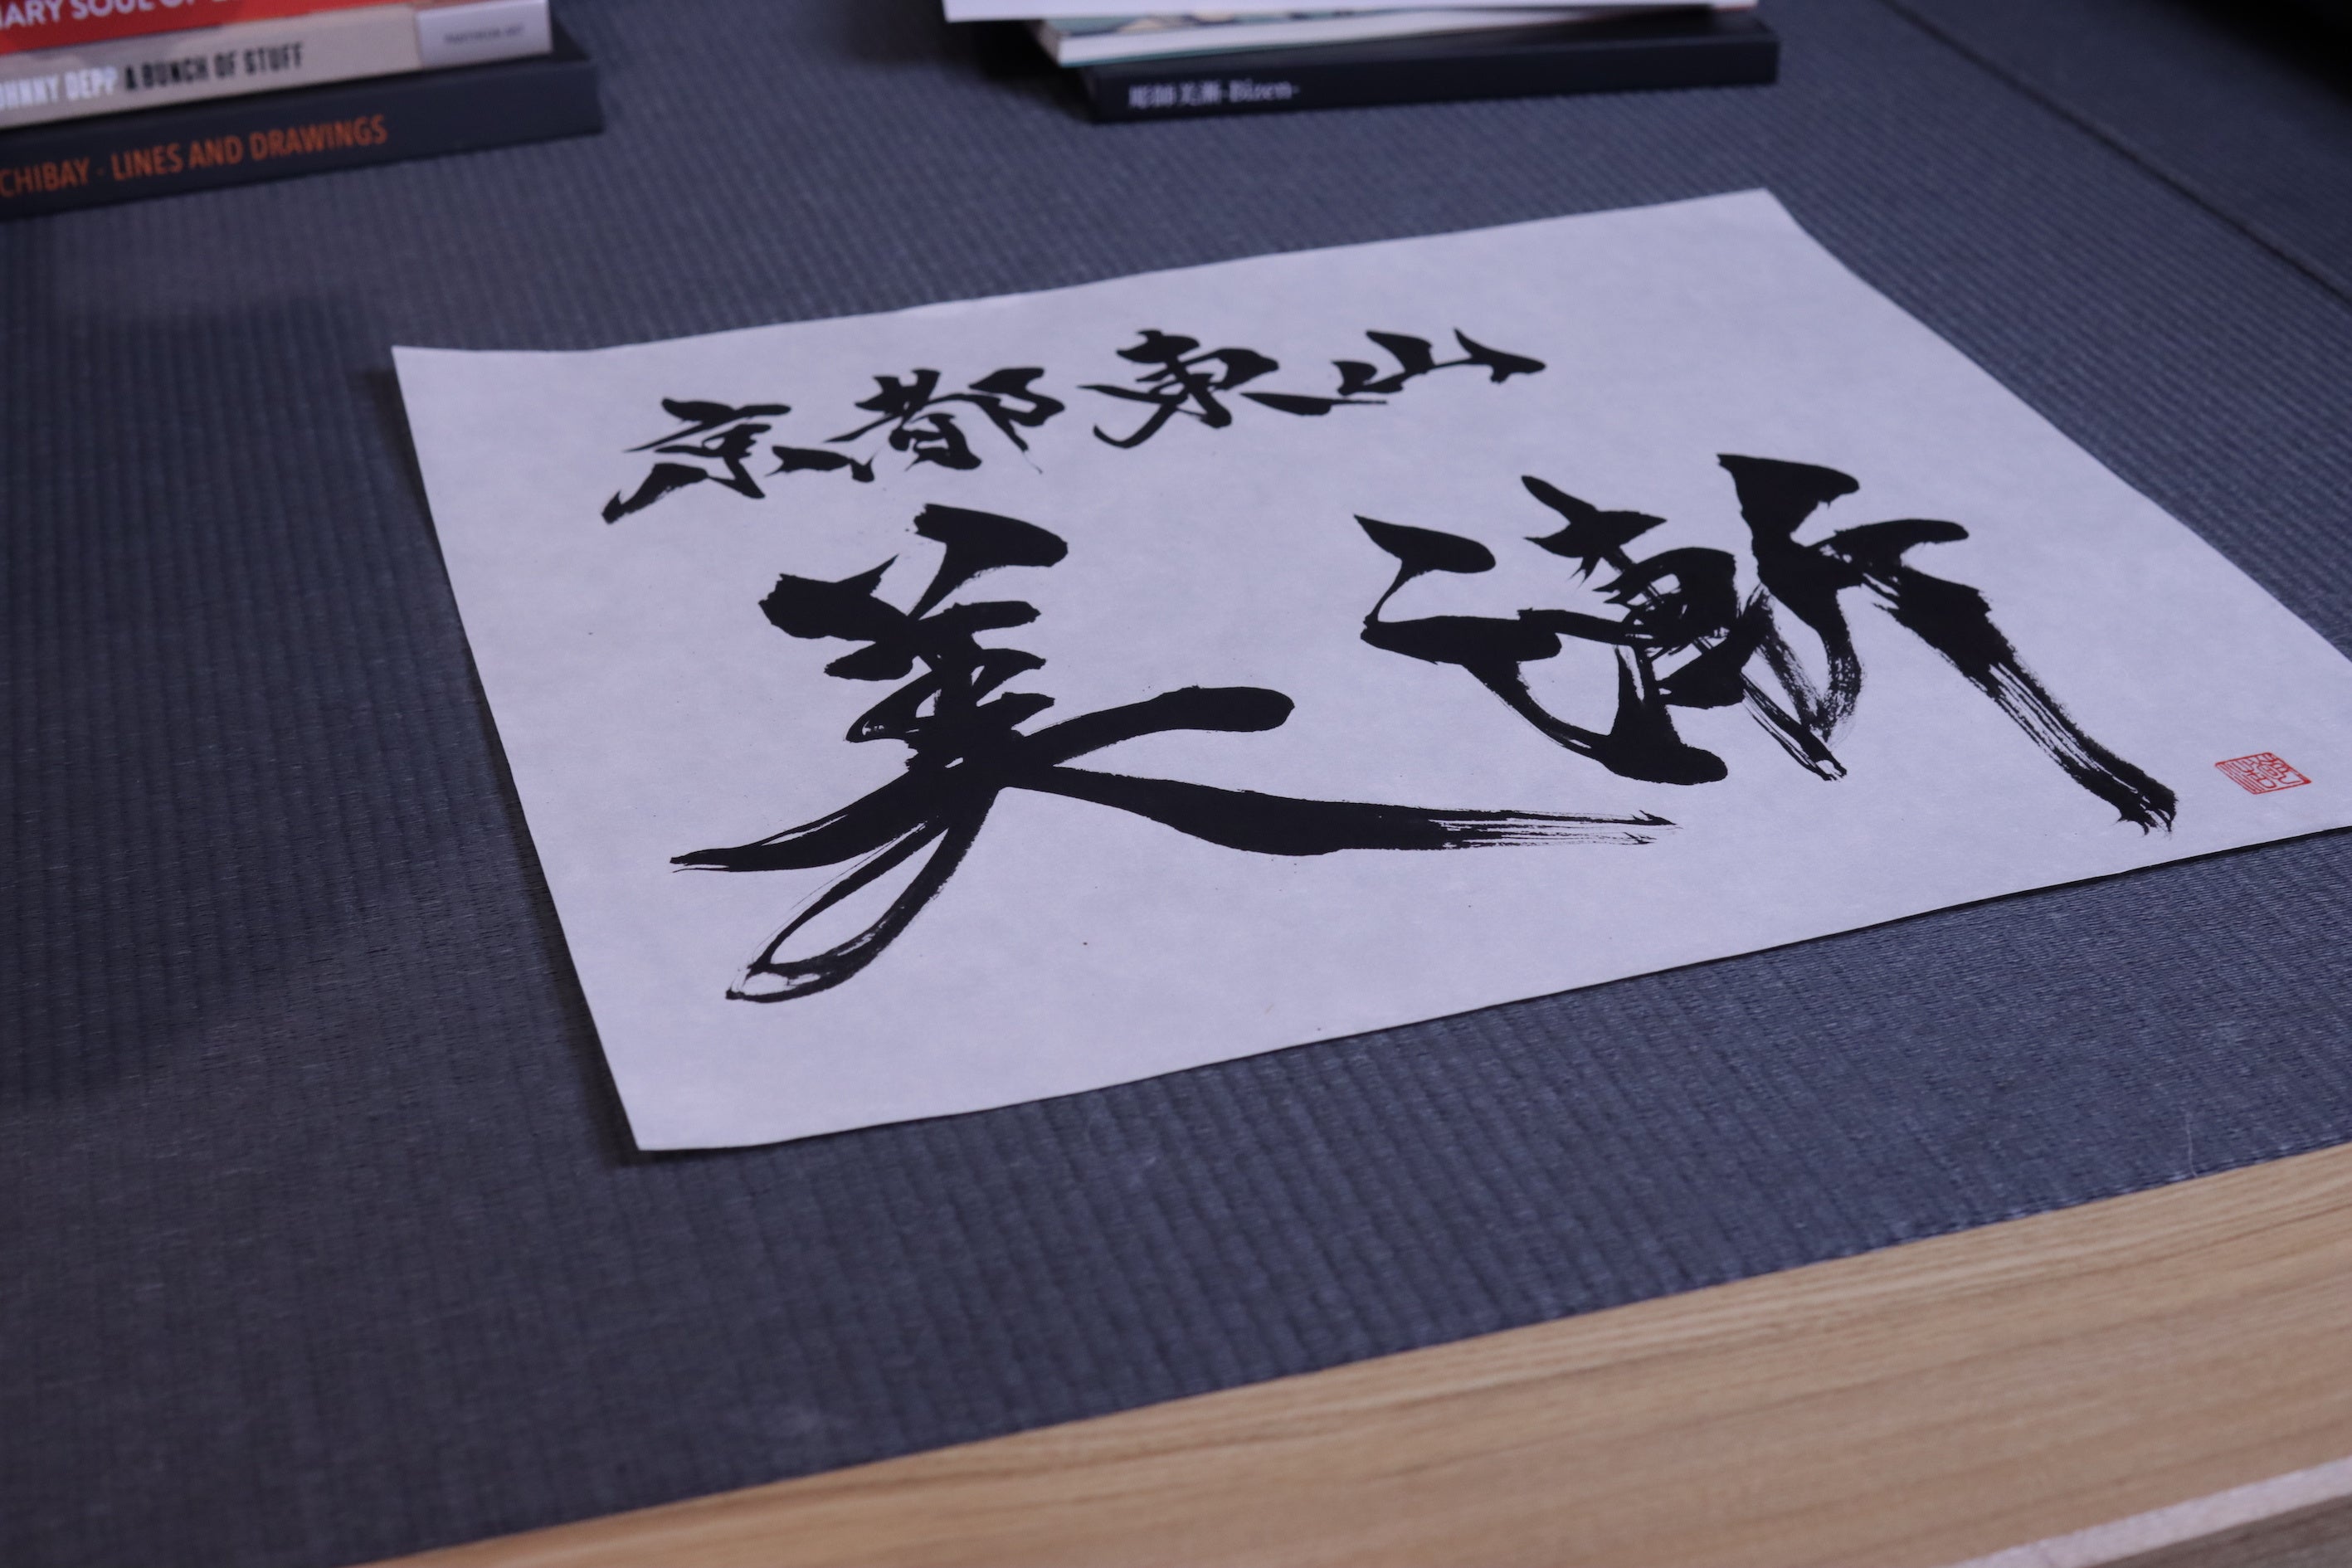 ARY SOUL OF
JOHNNY DEPP A BUNCH OF STUFF
CHIBAY - LINES AND DRAWINGS
彫師美漸-Bizen-
京都東山
美漸